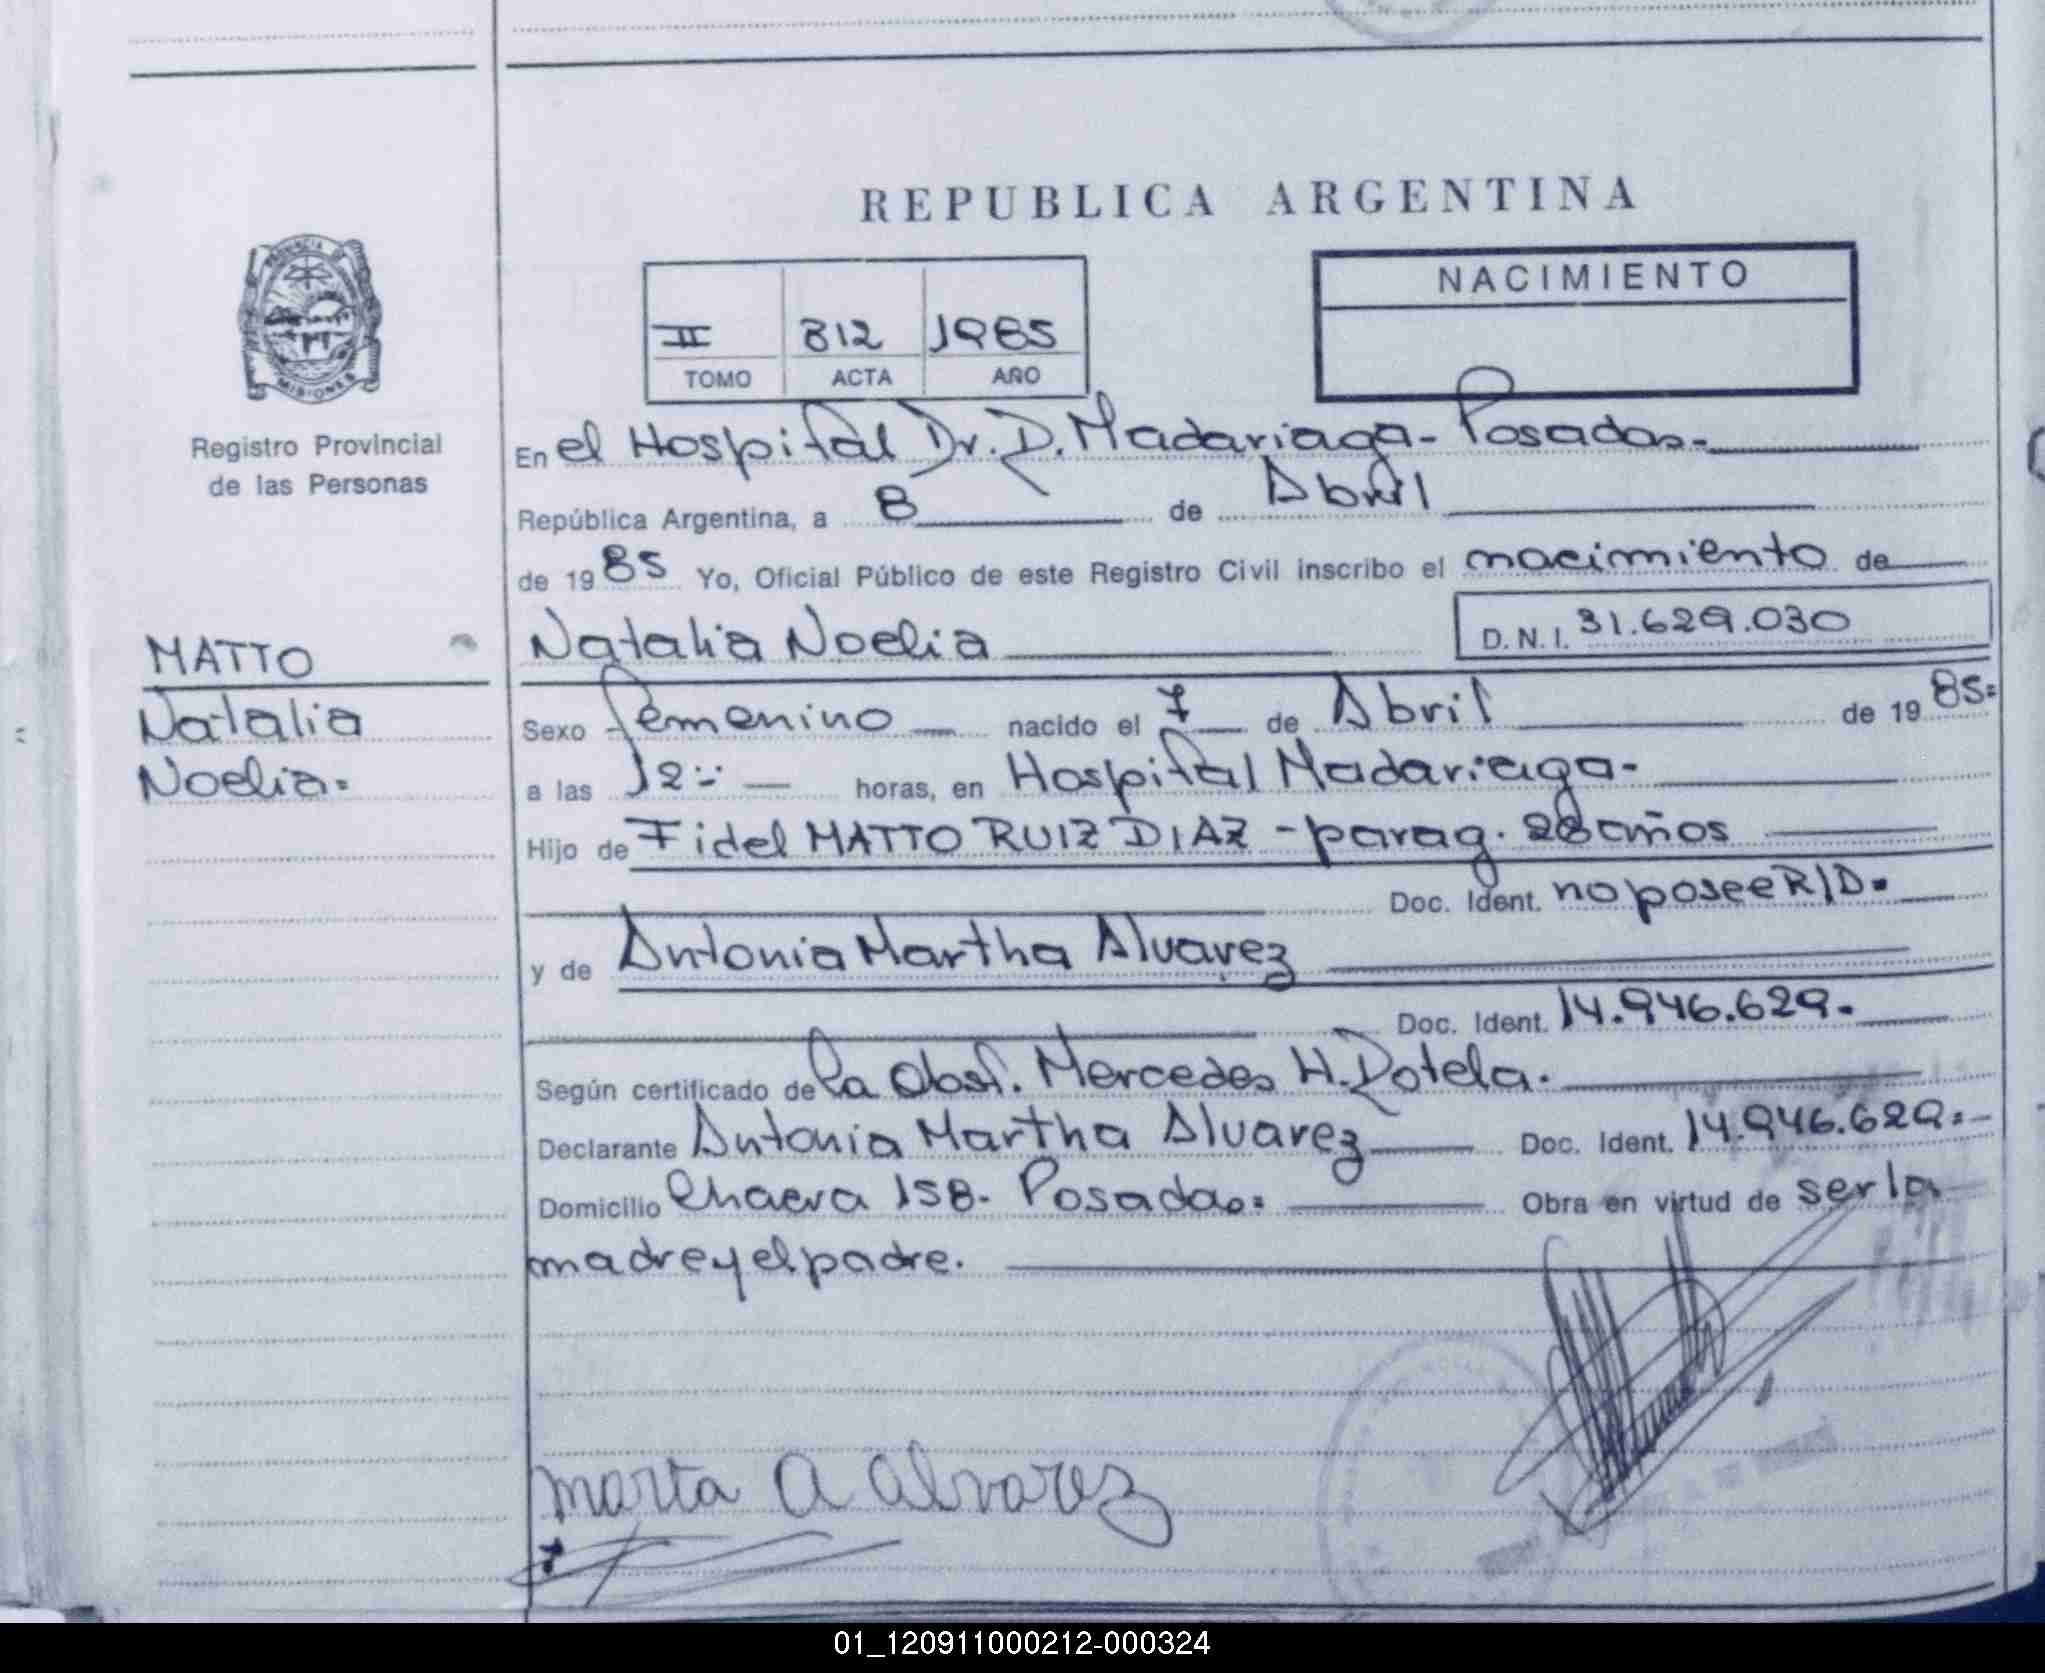 REPUBLICA ARGENTINA
PROVINCIA DE
MISIONES
Registro Provincial
de las Personas
II 812 1985
TOMO ACTA AÑO
NACIMIENTO
En el Hospital Dr. D. Madariaga - Posadas.-
República Argentina, a 8 de Abril
de 1985 Yo, Oficial Público de este Registro Civil inscribo el nacimiento de
MATTO
Natalia
Noelia.=
Natalia Noelia
D. N. I. 31.629.030
Sexo femenino nacido el 7 de Abril de 1985=
a las 12.- horas, en Hospital Madariaga.-
Hijo de Fidel MATTO RUIZ DIAZ - parag. 28 años
Doc. Ident. no posee R/D.=
y de Antonia Martha Alvarez
Doc. Ident. 14.946.629.-
Según certificado de la Obst. Mercedes H. Dotela.-
Declarante Antonia Martha Alvarez Doc. Ident. 14.946.629.=
Domicilio Chacra 158.- Posadas.= Obra en virtud de ser la
madre y el padre.
marta A alvarez
01_120911000212-000324